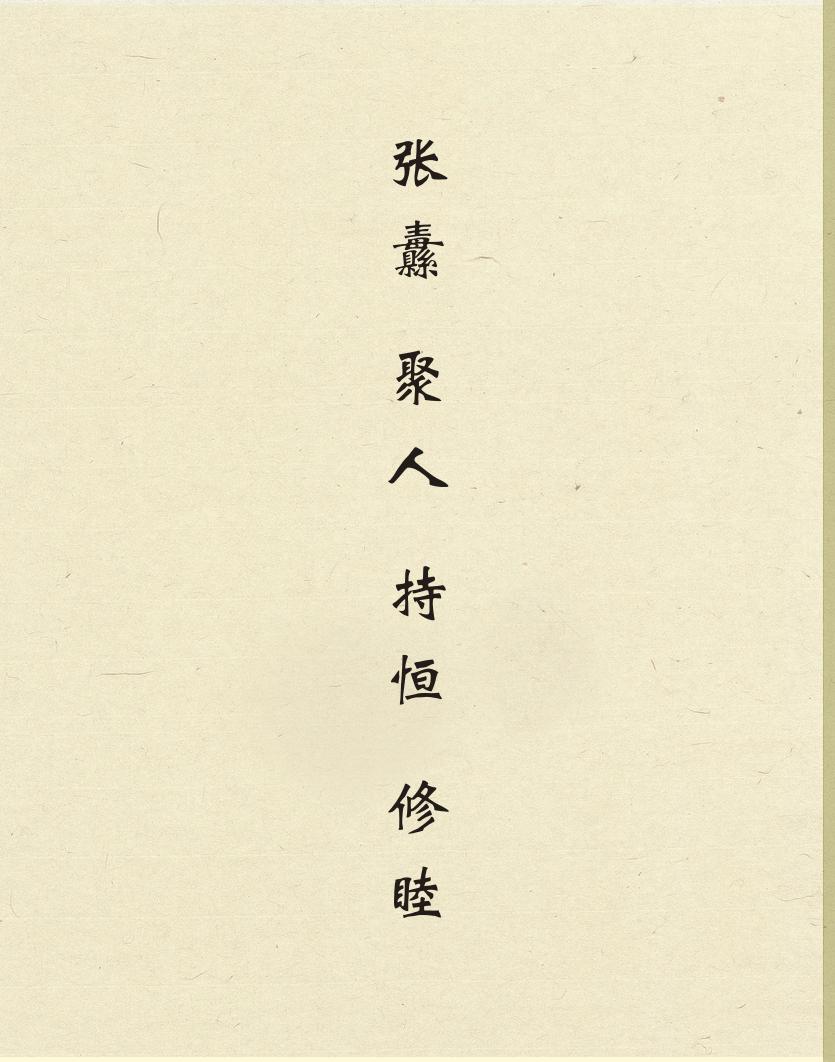 张纛 聚人 持恒 修睦